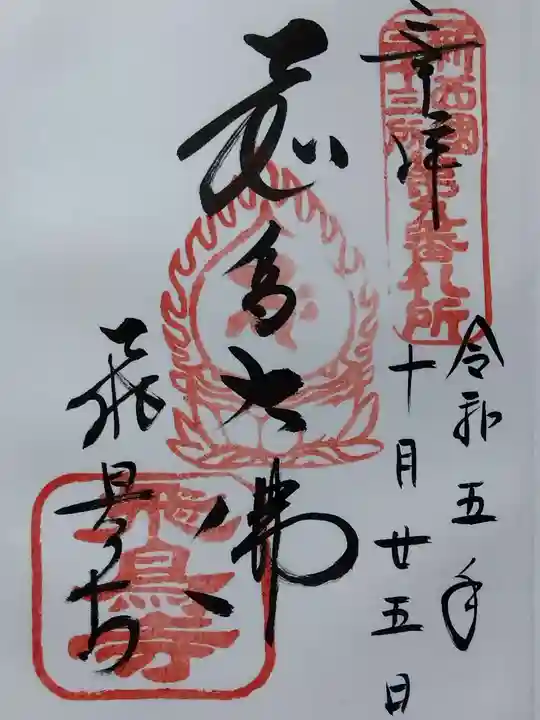 奉拝
新西国
三十三所
第九番札所
令和五年
十月廿五日
飛鳥大佛
飛鳥寺
飛鳥寺